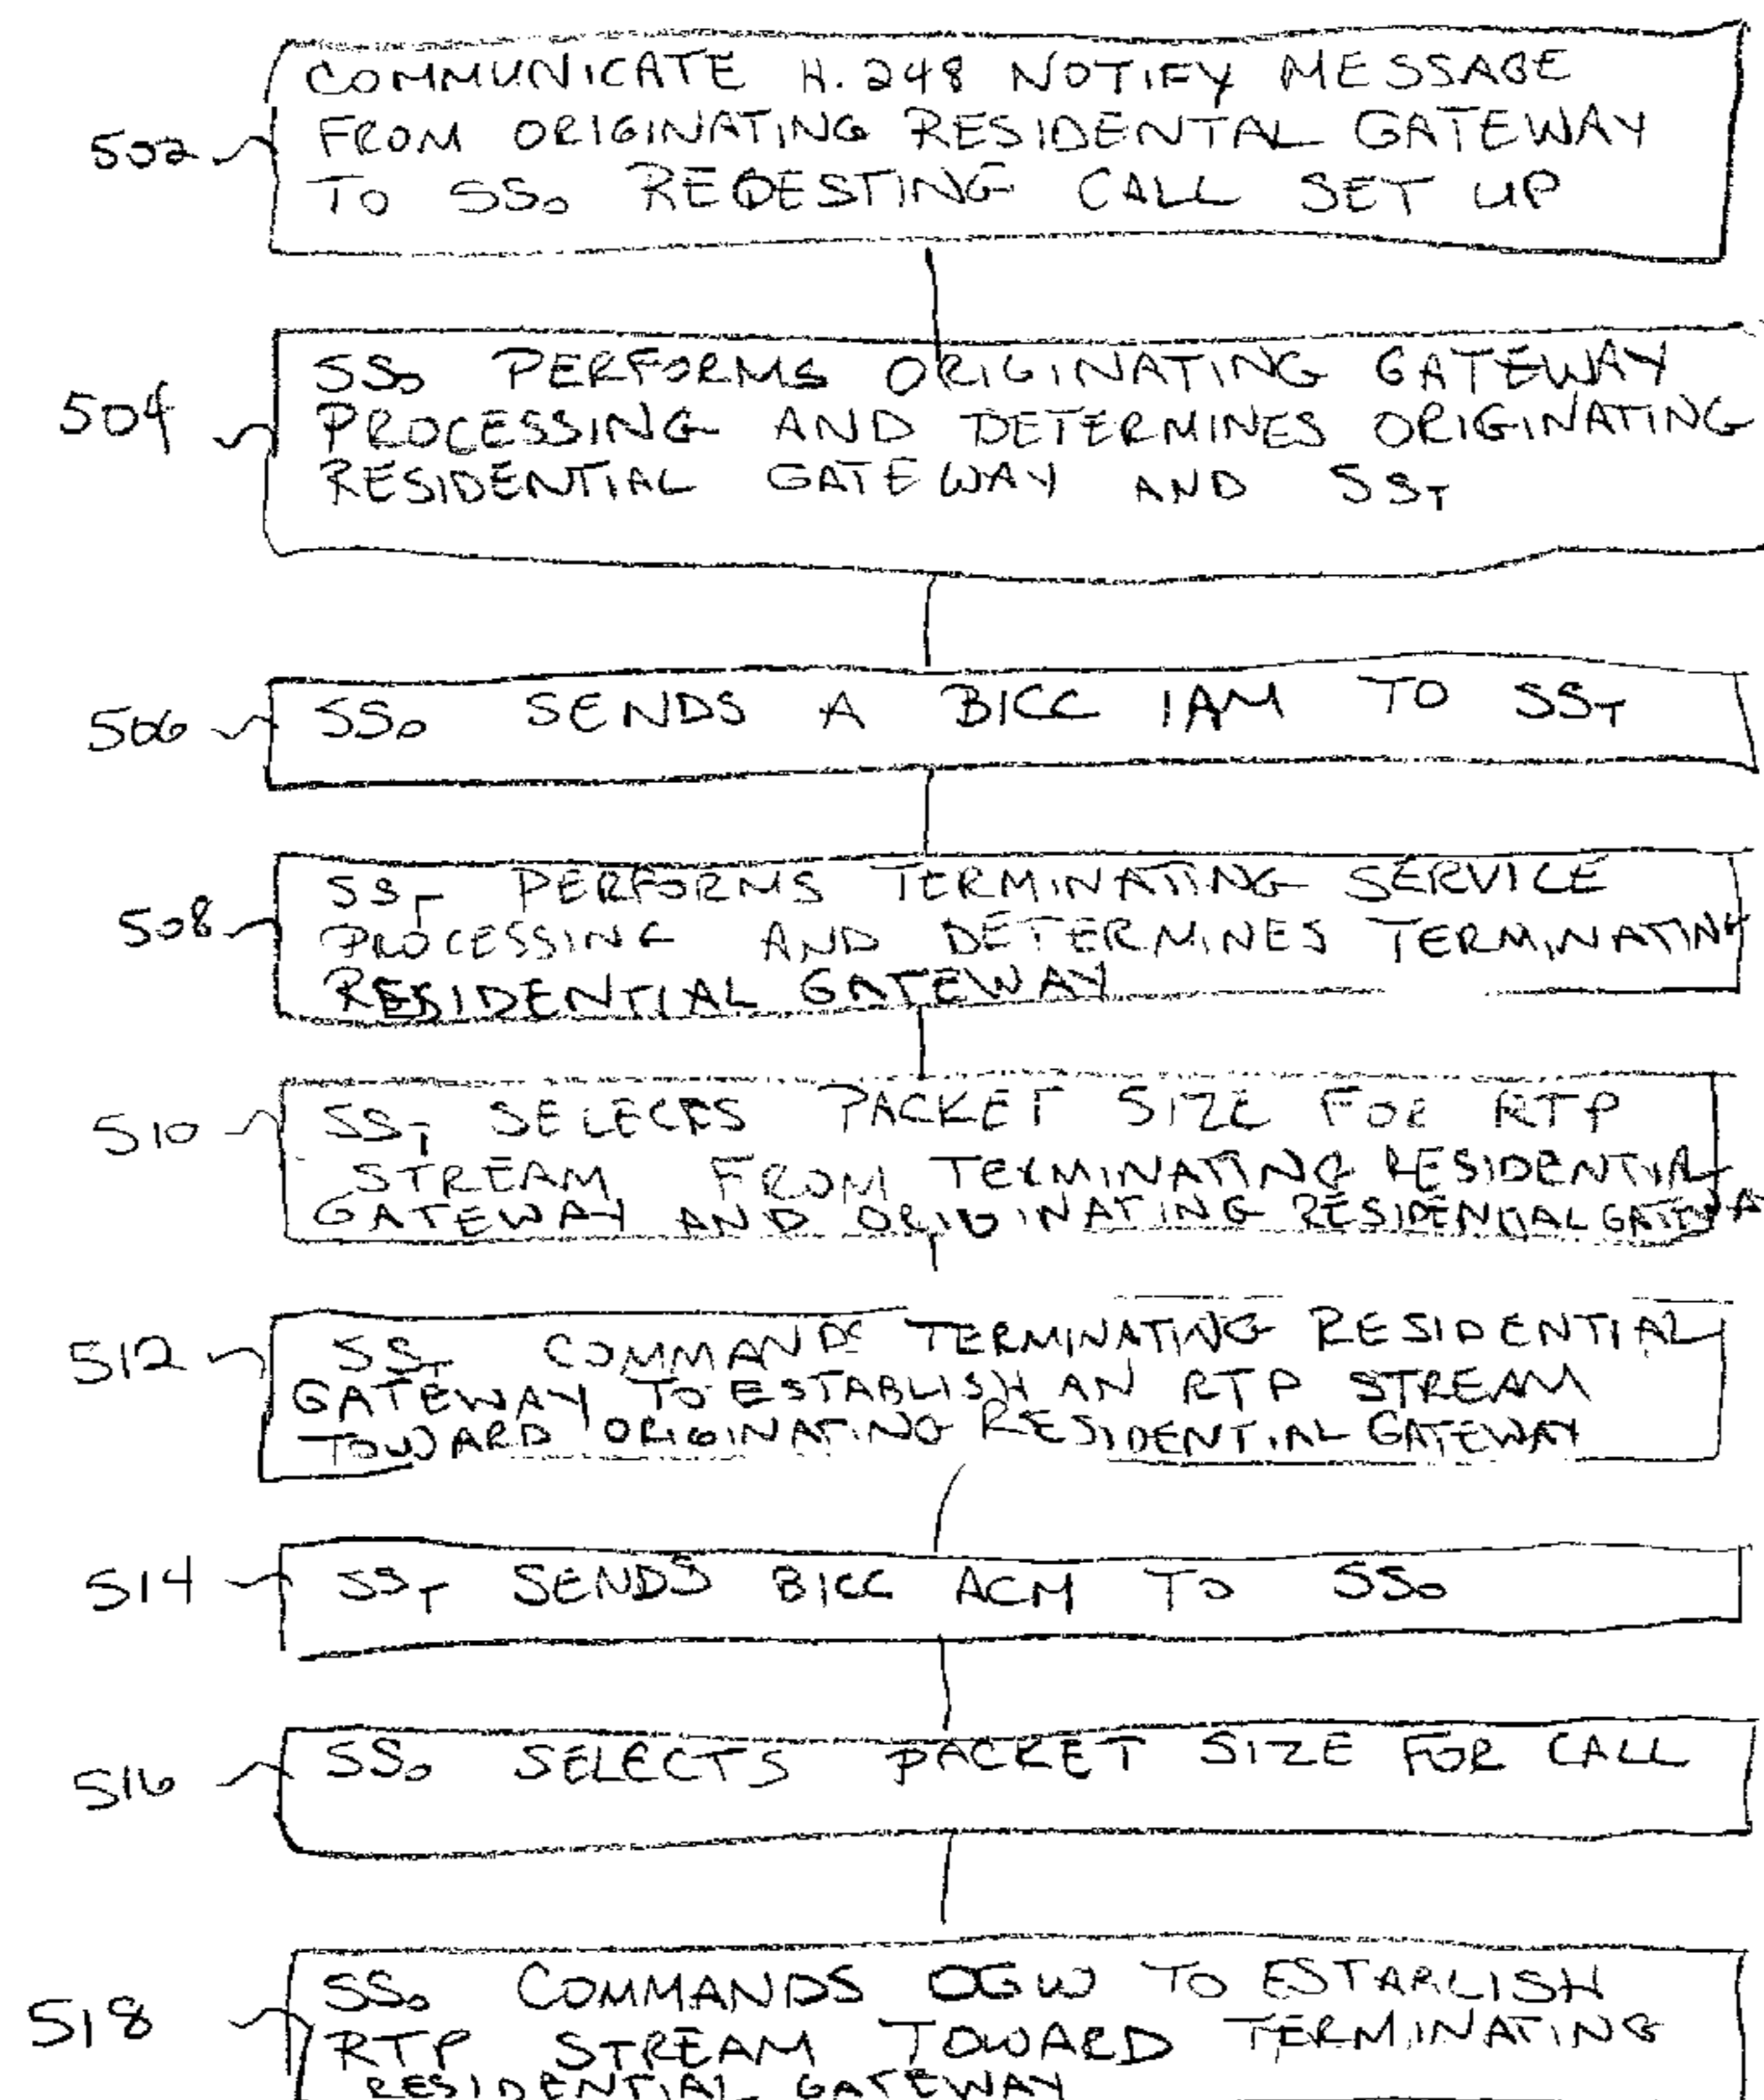 COMMUNICATE H.248 NOTIFY MESSAGE
502 FROM ORIGINATING RESIDENTAL GATEWAY
TO SSO REQESTING CALL SET UP
SSO PERFORMS ORIGINATING GATEWAY
504 PROCESSING AND DETERMINES ORIGINATING
RESIDENTIAL GATEWAY AND SST
506 SSO SENDS A BICC IAM TO SST
SST PERFORMS TERMINATING SERVICE
508 PROCESSING AND DETERMINES TERMINATING
RESIDENTIAL GATEWAY
510 SST SELECTS PACKET SIZE FOR RTP
STREAM FROM TERMINATING RESIDENTIAL
GATEWAY AND ORIGINATING RESIDENTIAL GATEWA
512 SST COMMANDS TERMINATING RESIDENTIAL
GATEWAY TO ESTABLISH AN RTP STREAM
TOWARD ORIGINATING RESIDENTIAL GATEWAY
514 SST SENDS BICC ACM TO SSO
516 SSO SELECTS PACKET SIZE FOR CALL
SSO COMMANDS OGW TO ESTABLISH
518 RTP STREAM TOWARD TERMINATING
RESIDENTIAL GATEWAY